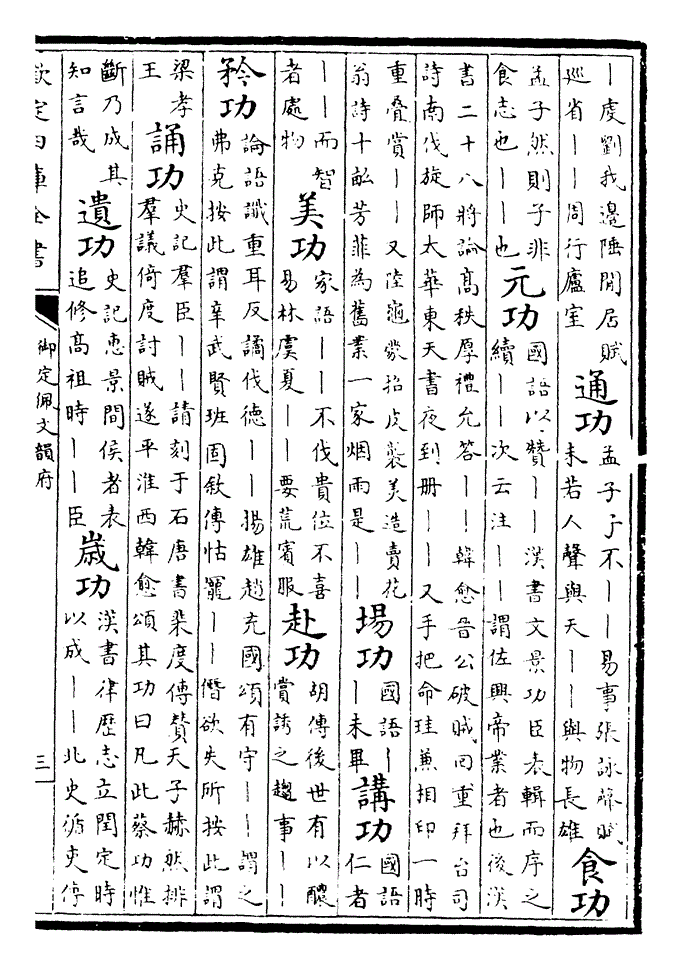 丨虔劉我邊陲閒居賦
巡省丨丨周行廬室
通功
孟子子不丨丨易事張詠聲賦
未若人聲與天丨丨與物長雄
食功
孟子然則子非
食志也丨丨也
元功
國語以贊丨丨漢書文景功臣表輯而序之
續丨丨次云注丨丨謂佐興帝業者也後漢
書二十八將論高秩厚禮允答丨丨韓愈晉公破賊回重拜台司
詩南伐旋師太華東天書夜到册丨丨又手把命珪兼相印一時
重疊賞丨丨又陸龜蒙招虎裘美造賣花
翁詩十畝芳菲為舊業一家烟雨是丨丨
場功
國語丨
丨未畢
講功
國語
仁者
丨丨而智
者處物
美功
家語丨丨不伐貴位不喜
易林虞夏丨丨要荒賓服
赴功
胡傳後世有以醲
賞誘之趨事丨丨
矜功
論語讖重耳反譎伐德丨丨揚雄趙充國頌有守丨丨謂之
弗克按此謂辛武賢班固敘傳怙寵丨丨僭欲失所按此謂
梁孝
王
誦功
史記羣臣丨丨請刻于石唐書裴度傳贊天子赫然排
羣議倚度討賊遂平淮西韓愈頌其功曰凡此蔡功惟
斷乃成其
知言哉
遺功
史記惠景間侯者表
追修高祖時丨丨臣
歲功
漢書律歷志立閏定時
以成丨丨北史循吏傳
欽定四庫全書
御定佩文韻府
三